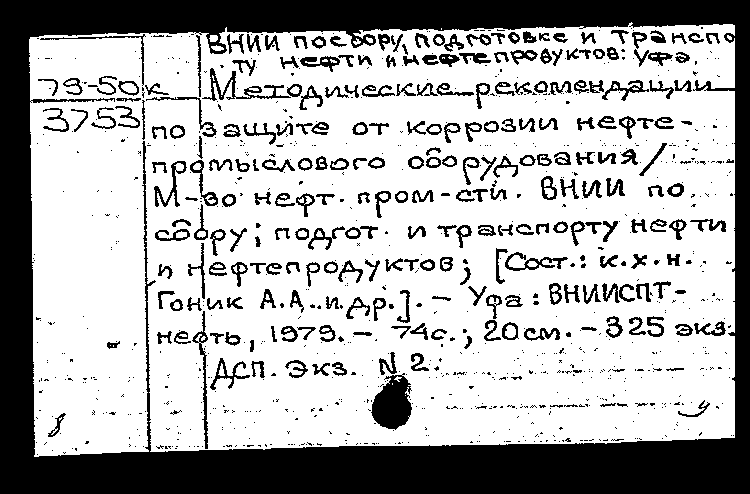 ВНИИ по сбору, подготовке и транспо
ту нефти и нефтепродуктов: Уфа.
79-50к Методические рекомендации
3753 по защите от коррозии нефте-
промыслового оборудования /
М-во нефт. пром-сти. ВНИИ по
сбору; подгот. и транспорту нефти
и нефтепродуктов; [Сост.: к.х.н.
Гоник А.А. и др.]. - Уфа: ВНИИСПТ-
нефть, 1979. - 74с.; 20см. - 325 экз.
ДСП. Экз. N 2.